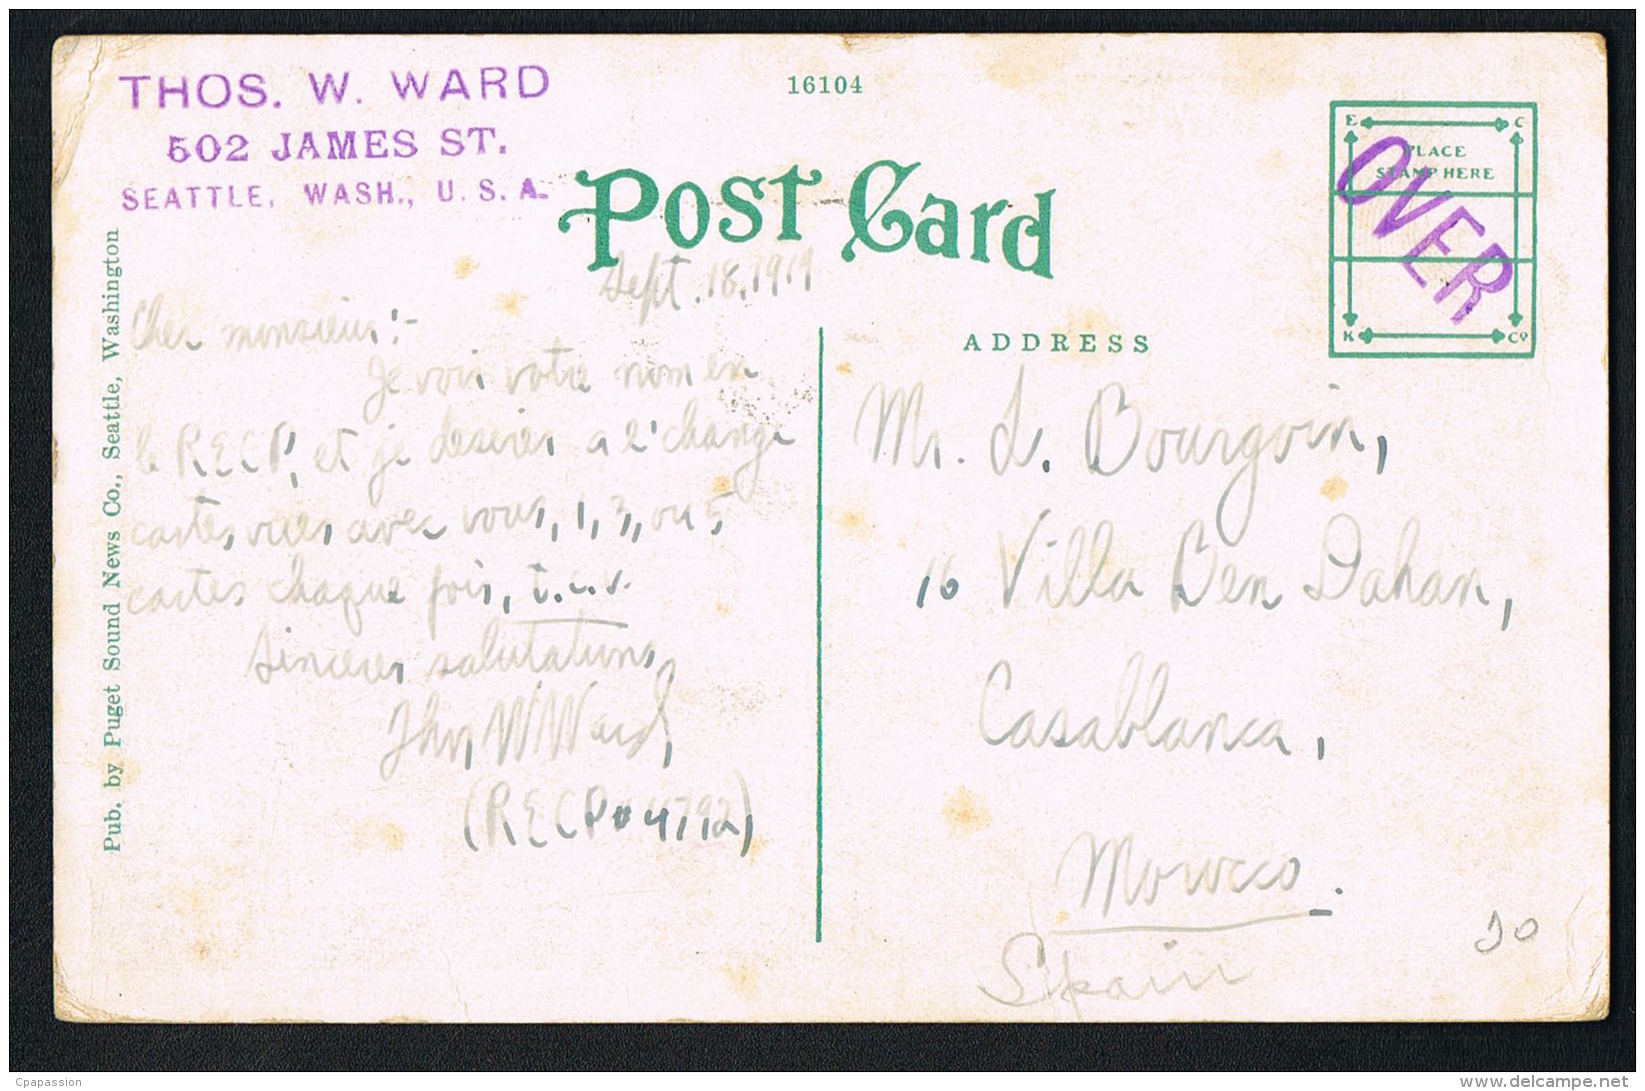 THOS. W. WARD
502 JAMES ST.
SEATTLE, WASH., U.S.A.
16104
POST CARD
E C
PLACE
STAMP HERE
K Co
OVER
Pub. by Puget Sound News Co., Seattle, Washington
Sept. 18, 1919
Cher monsieur:-
Je vois votre nom en
le RECP, et je desires a l'change
cartes vues avec vous, 1, 3, ou 5
cartes chaque fois, t.c.v.
Sinceres salutations,
W Ward,
(RECP # 4792)
ADDRESS
Mr. L. Bourgoin,
16 Villa Ben Dahan,
Casablanca,
Morocco.
Spain
Cpapassion
www.delcampe.net